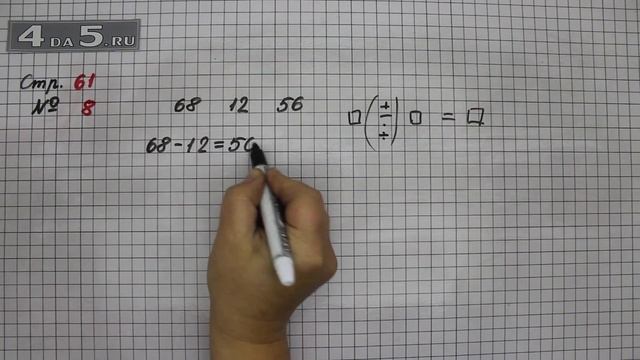 4DA5.RU
Стр. 61
№ 8
68 12 56
□ ( + − · ÷ ) □ = □
68 - 12 = 56